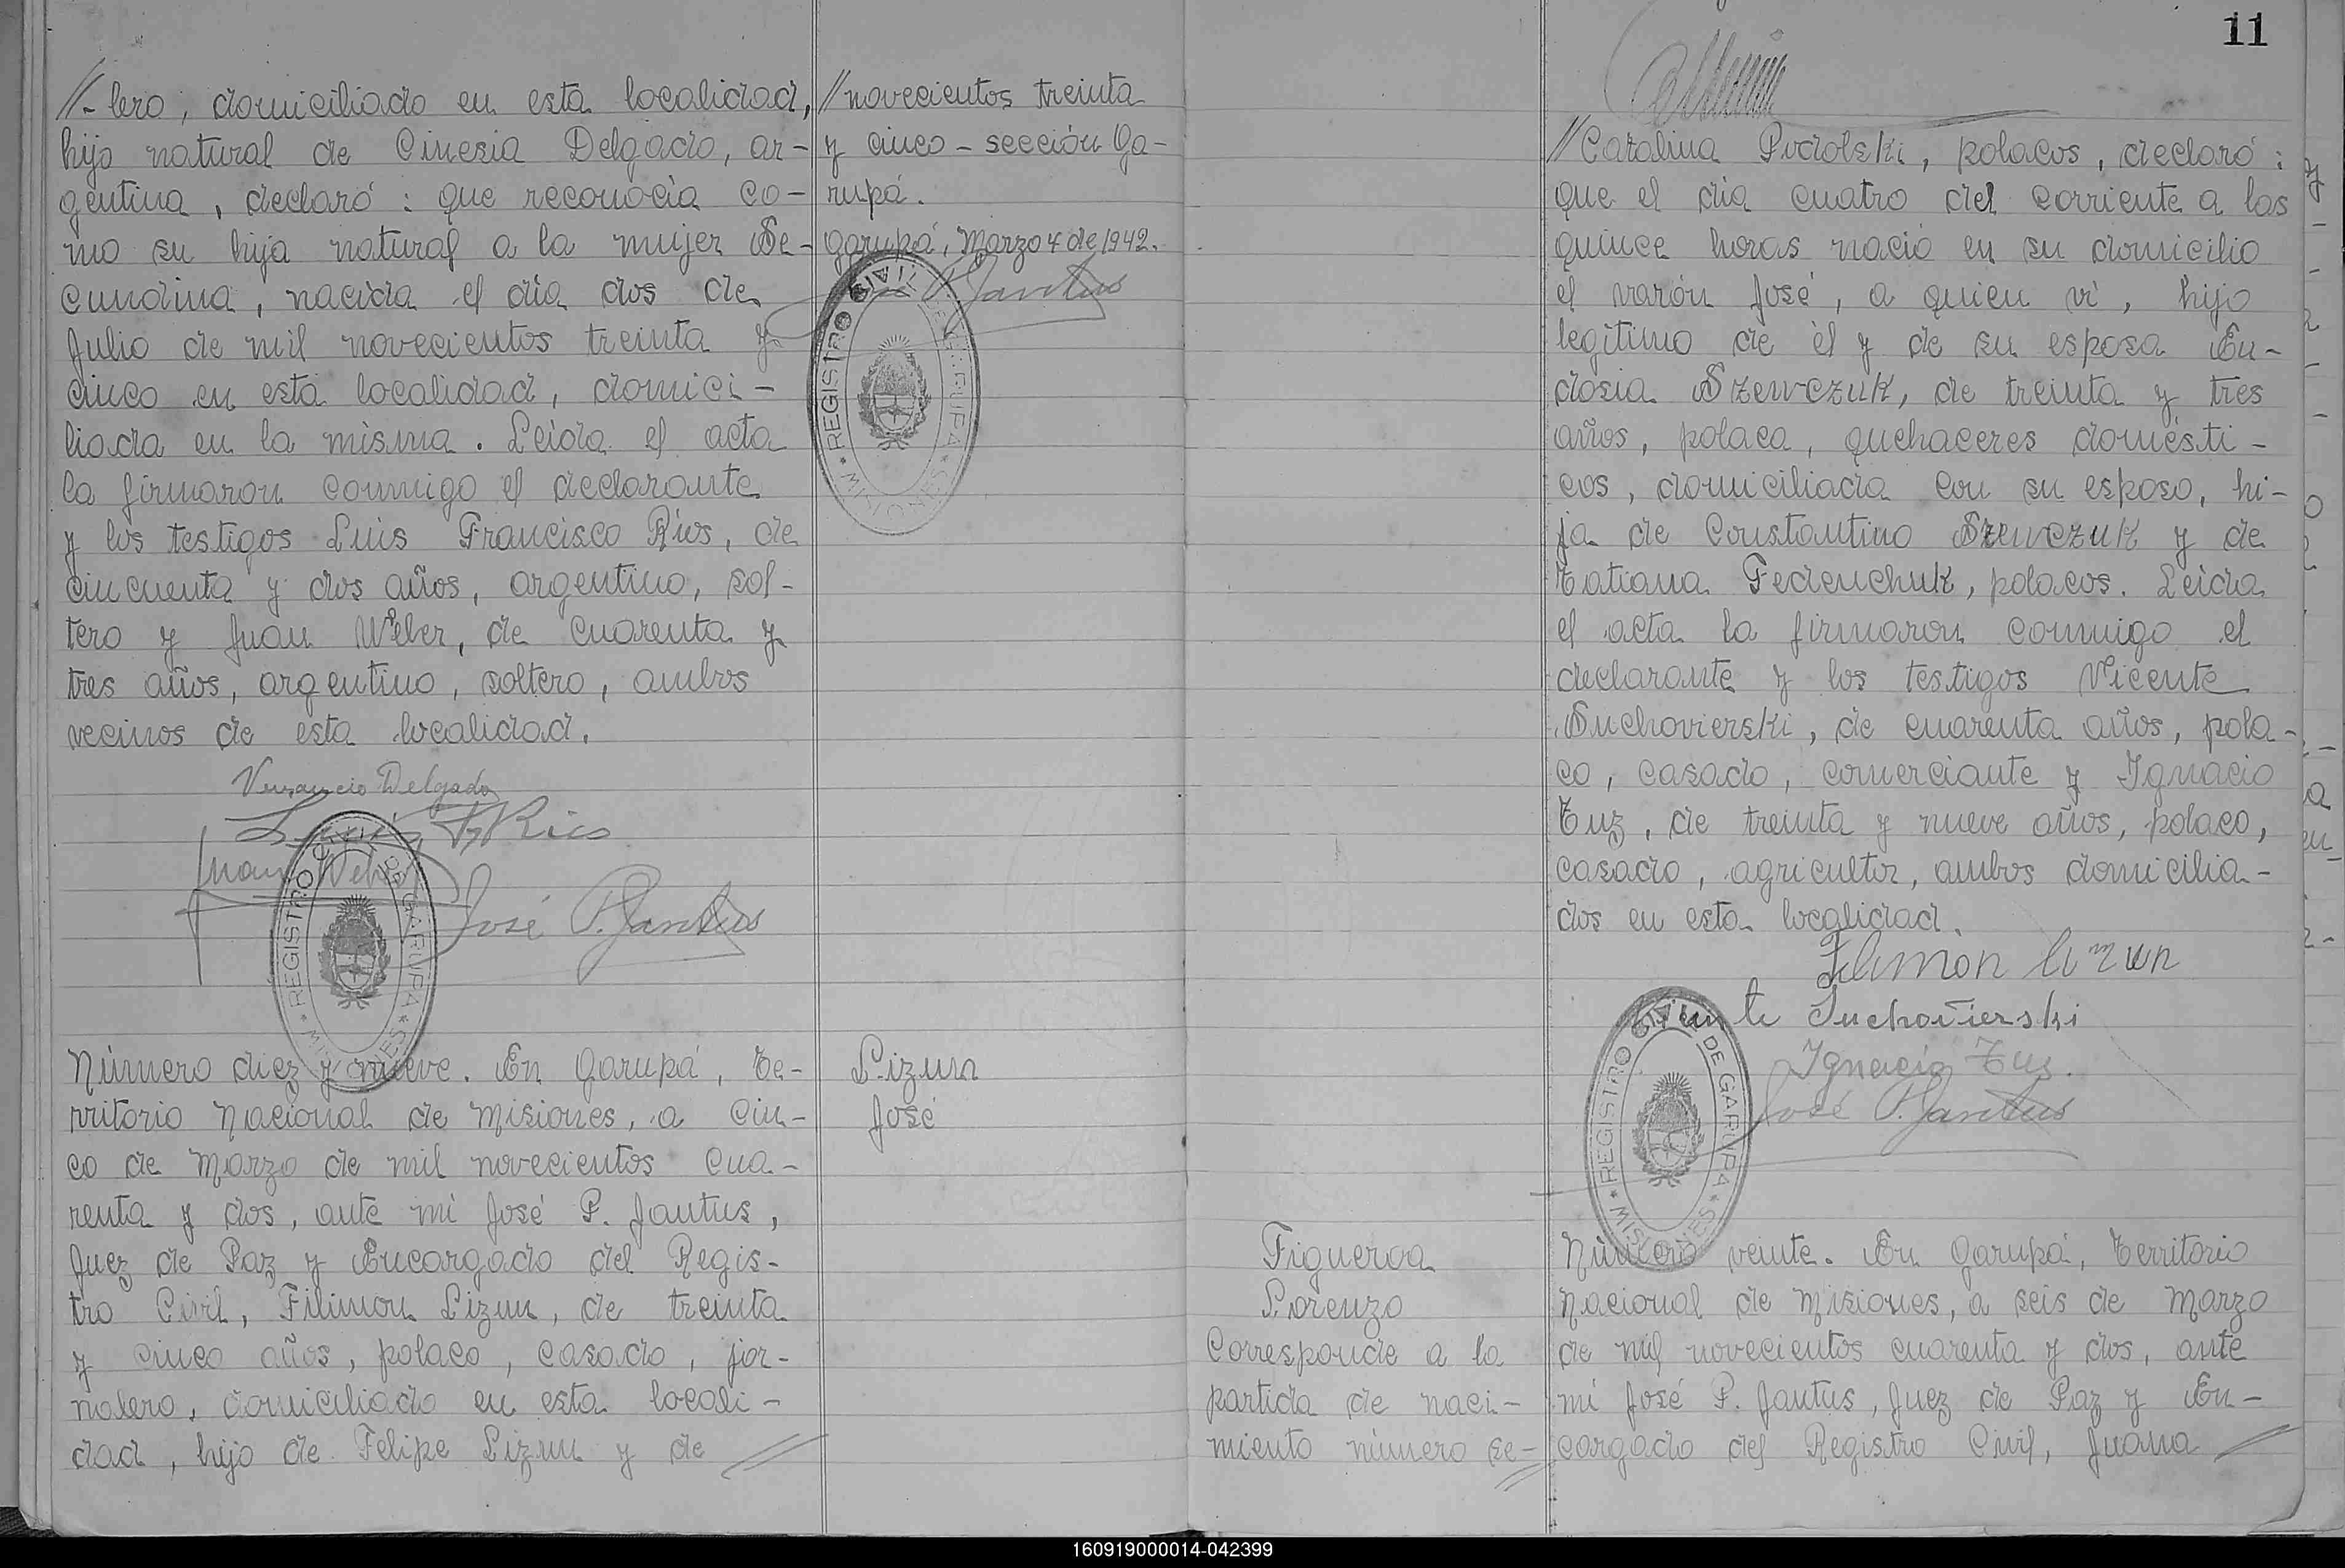 //-lero, domiciliado en esta localidad,
hijo natural de Cinesia Delgado, ar-
gentina, declaró: que reconocía co-
mo su hija natural a la mujer Se-
cundina, nacida el día dos de
Julio de mil novecientos treinta y
cinco en esta localidad, domici-
liada en la misma. Leída el acta
la firmaron conmigo el declarante
y los testigos Luis Francisco Ríos, de
cincuenta y dos años, argentino, sol-
tero y Juan Weber, de cuarenta y
tres años, argentino, soltero, ambos
vecinos de esta localidad.
Venancio Delgado
Luis F. Rios
Juan Weber
José P. Jantus
REGISTRO CIVIL DE GARUPA
* MISIONES *
Número diez y nueve. En Garupá, Te-
rritorio Nacional de Misiones, a cin-
co de Marzo de mil novecientos cua-
renta y dos, ante mí José P. Jantus,
Juez de Paz y Encargado del Regis-
tro Civil, Filimon Lizun, de treinta
y cinco años, polaco, casado, jor-
nalero, domiciliado en esta locali-
dad, hijo de Felipe Lizun y de //
//novecientos treinta
y cinco - sección Ga-
rupá.
Garupá, Marzo 4 de 1942.
José P. Jantus
REGISTRO CIVIL DE GARUPA
* MISIONES *
Lizun
José
Figueroa
Lorenzo
Corresponde a la
partida de naci-
miento número se-//
11
//Catalina Podolski, polacos, declaró:
que el día cuatro del corriente a las
quince horas nació en su domicilio
el varón José, a quien ví, hijo
legítimo de él y de su esposa Eu-
dosia Szewczuk, de treinta y tres
años, polaca, quehaceres domésti-
cos, domiciliada con su esposo, hi-
ja de Constantino Szewczuk y de
Tatiana Fedenchuk, polacos. Leída
el acta la firmaron conmigo el
declarante y los testigos Vicente
Suchovierski, de cuarenta años, pola-
co, casado, comerciante y Ignacio
Tuz, de treinta y nueve años, polaco,
casado, agricultor, ambos domicilia-
dos en esta localidad.
Filimon Lizun
Vicente Suchovierski
Ignacio Tuz.
José P. Jantus
REGISTRO CIVIL DE GARUPA
* MISIONES *
Número veinte. En Garupá, Territorio
Nacional de Misiones, a seis de Marzo
de mil novecientos cuarenta y dos, ante
mí José P. Jantus, Juez de Paz y En-
cargado del Registro Civil, Juana //
160919000014-042399